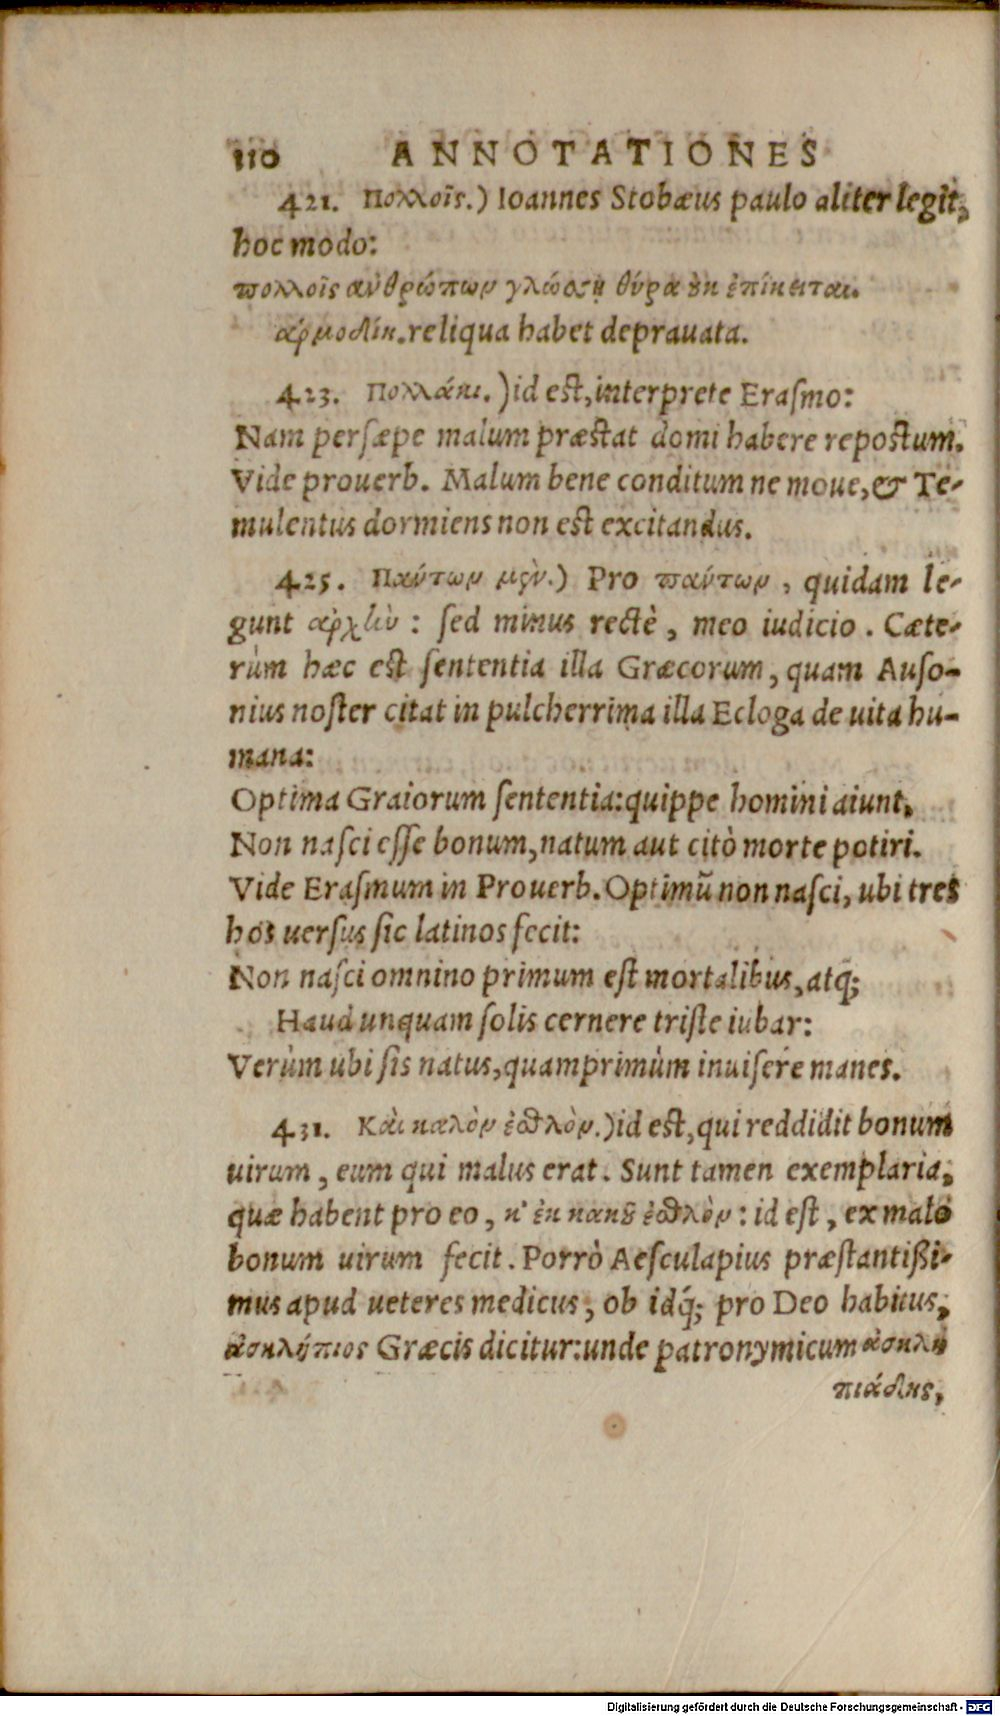 110 ANNOTATIONES
421. Πολλοῖς.) Ioannes Stobæus paulo aliter legit,
hoc modo:
πολλοῖς ἀνθρώπων γλώσσῃ θύρα ἐκ ἐπίκειται.
ἁρμοδίη. reliqua habet deprauata.
423. Πολλάκι.) id est, interprete Erasmo:
Nam persæpe malum præstat domi habere repostum.
Vide prouerb. Malum bene conditum ne moue, & Te-
mulentus dormiens non est excitandus.
425. Πάντων μὲν.) Pro πάντων, quidam le-
gunt ἀρχὴν: sed minus rectè, meo iudicio. Cæte-
rùm hæc est sententia illa Græcorum, quam Auso-
nius noster citat in pulcherrima illa Ecloga de uita hu-
mana:
Optima Graiorum sententia: quippe homini aiunt,
Non nasci esse bonum, natum aut citò morte potiri.
Vide Erasmum in Prouerb. Optimũ non nasci, ubi tres
hos uersus sic latinos fecit:
Non nasci omnino primum est mortalibus, atq;
Haud unquam solis cernere triste iubar:
Verùm ubi sis natus, quamprimùm inuisere manes.
431. Καὶ καλὸν ἐσθλὸν.) id est, qui reddidit bonum
uirum, eum qui malus erat. Sunt tamen exemplaria,
quæ habent pro eo, κ' ἐκ κακοῦ ἐσθλὸν: id est, ex malo
bonum uirum fecit. Porrò Aesculapius præstantißi-
mus apud ueteres medicus, ob idq́; pro Deo habitus,
ἀσκλήπιος Græcis dicitur: unde patronymicum ἀσκλη
πιάδης,
Digitalisierung gefördert durch die Deutsche Forschungsgemeinschaft - DFG